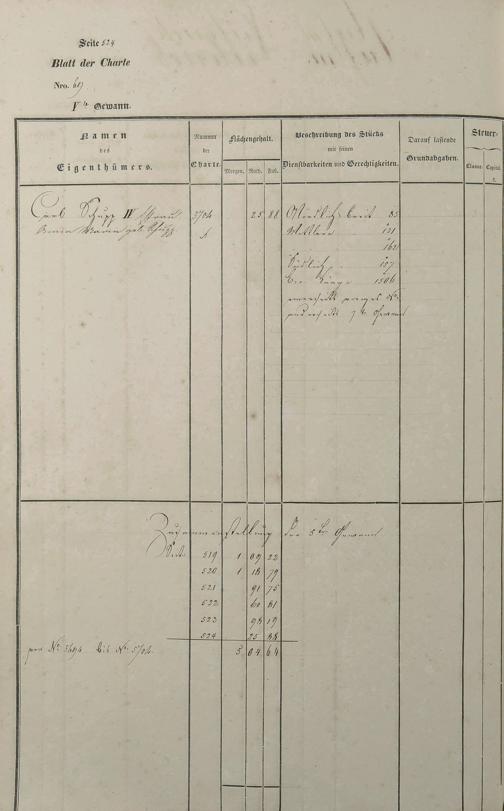 Seite 524
Blatt der Charte
Nro. 69
Vte Gewann.
Namen
des
Eigenthümers.
Nummer
der
Charte.
Flächengehalt.
Morgen. Ruth. Fuß.
Beschreibung des Stücks
mit seinen
Dienstbarkeiten und Gerechtigkeiten.
Darauf lastende
Grundabgaben.
Steuer-
Classe. Capital.
Schupp IV Frau 5704 25 88 Oestlich breit 85
Anna Maria geb. Schupp Mittlere 121
162
Südlich 157
1506
5te Gewann
Zusammenstellung der 5ten Gewann
Seite 519 1 09 22
520 1 18 79
521 91 75
522 60 81
523 98 19
524 25 88
von No. 5694 bis No. 5704. 5 04 64